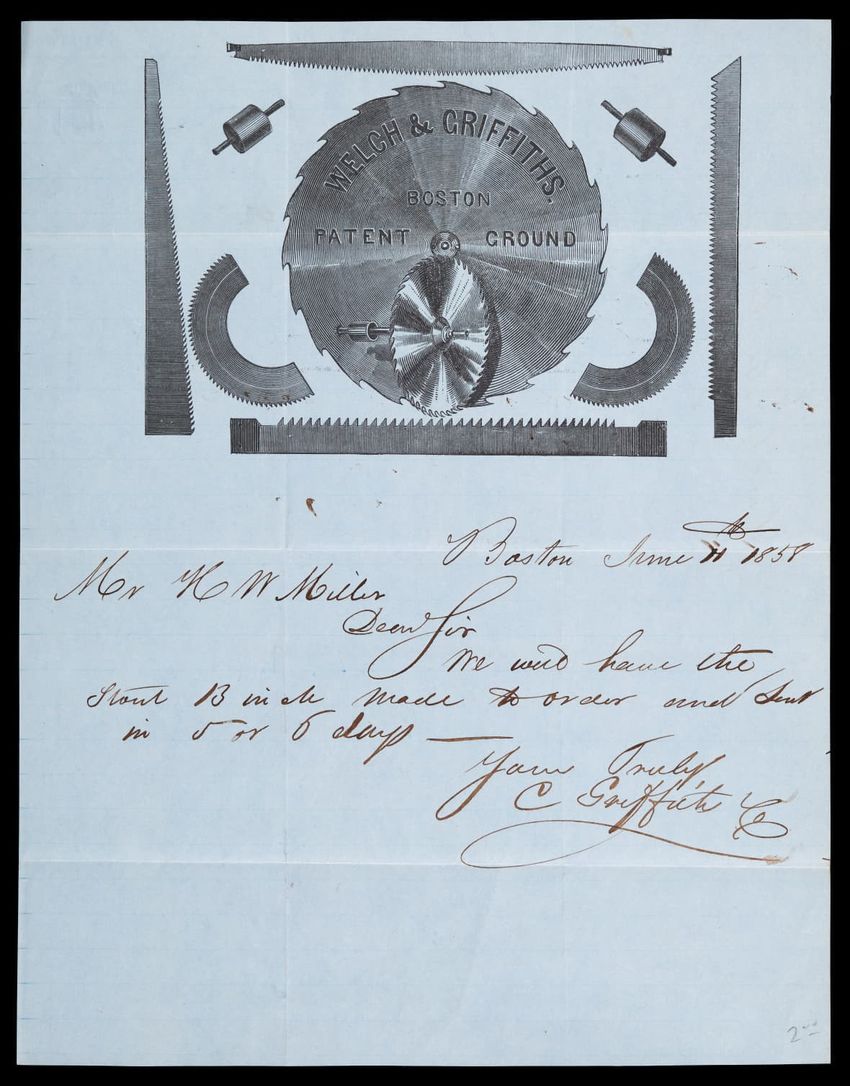 WELCH & GRIFFITHS.
BOSTON
PATENT GROUND
Boston June 11th 1858
Mr H W Miller
Dear Sir
We will have the
Stout 13 inch made to order and Sent
in 5 or 6 days —
Yours Truly
C Griffiths
2nd